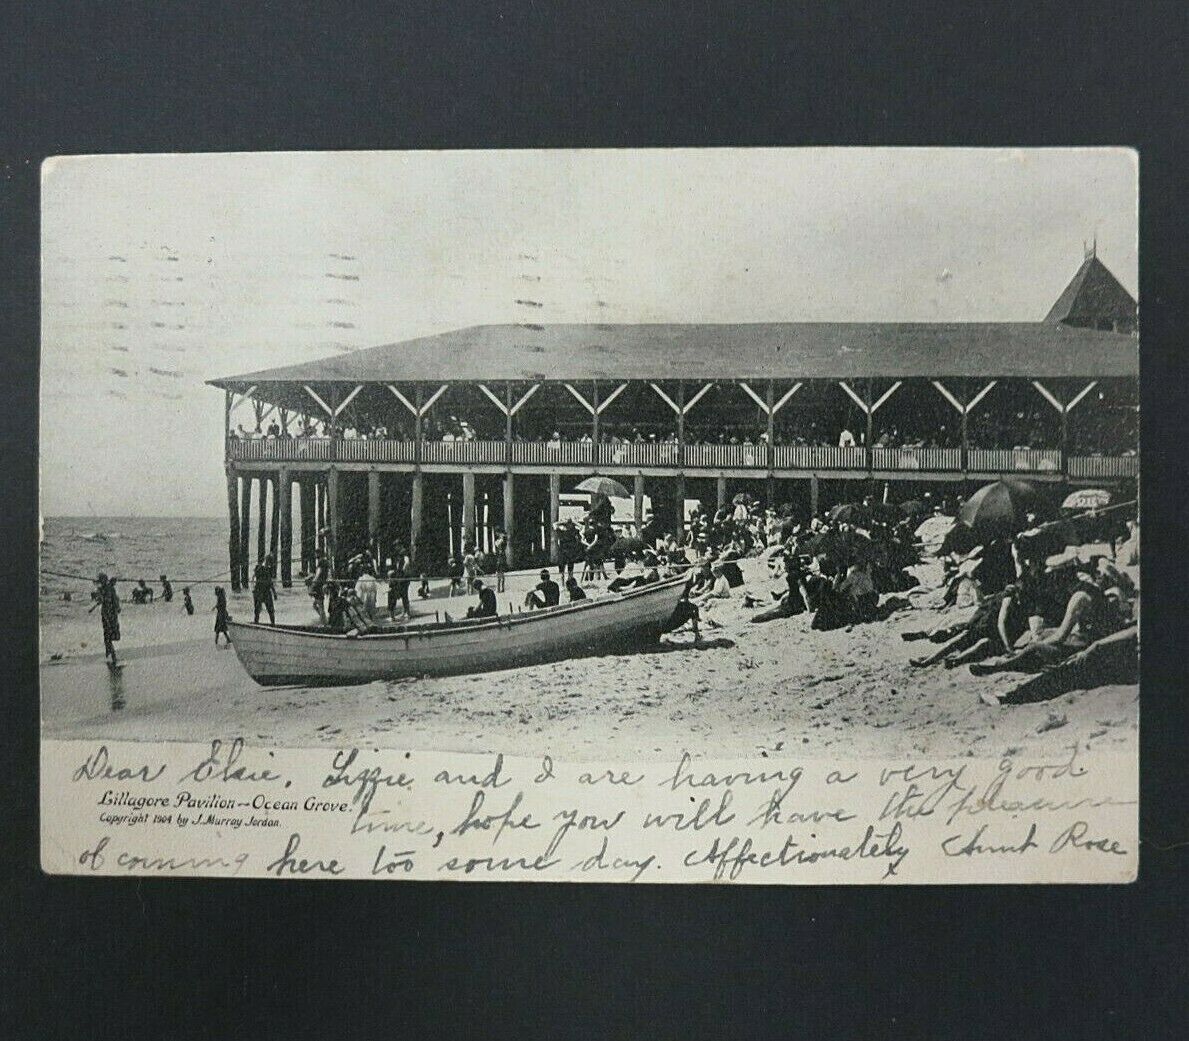 Dear Elsie, Lizzie and I are having a very good
Lillagore Pavilion—Ocean Grove.
Copyright 1904 by J. Murray Jordan.
time, hope you will have the pleasure
of coming here too some day. Affectionately Aunt Rose